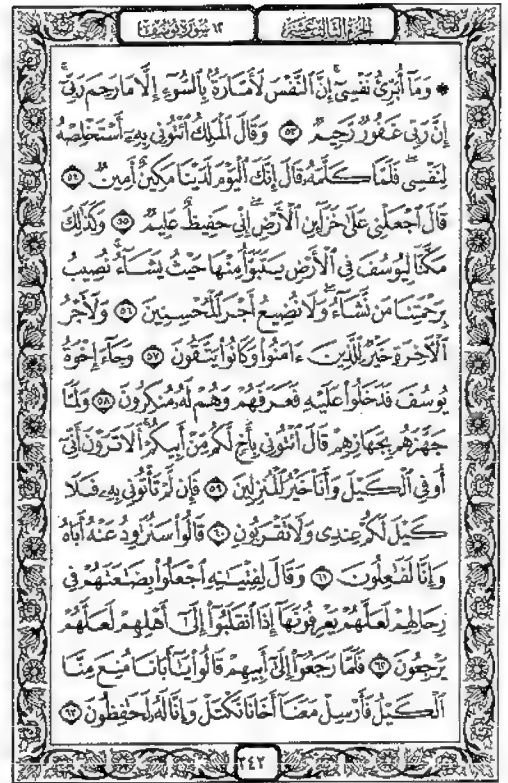 الجزء الثالث عشر ١٢ سورة يوسف
* وَمَآ أُبَرِّئُ نَفْسِىٓ إِنَّ ٱلنَّفْسَ لَأَمَّارَةٌۢ بِٱلسُّوٓءِ إِلَّا مَارَحِمَ رَبِّىٓ
إِنَّ رَبِّى غَفُورٌ رَّحِيمٌ ۝٥٣ وَقَالَ ٱلْمَلِكُ ٱئْتُونِى بِهِۦٓ أَسْتَخْلِصْهُ
لِنَفْسِى فَلَمَّا كَلَّمَهُۥ قَالَ إِنَّكَ ٱلْيَوْمَ لَدَيْنَا مَكِينٌ أَمِينٌ ۝٥٤
قَالَ ٱجْعَلْنِى عَلَىٰ خَزَآئِنِ ٱلْأَرْضِ إِنِّى حَفِيظٌ عَلِيمٌ ۝٥٥ وَكَذَٰلِكَ
مَكَّنَّا لِيُوسُفَ فِى ٱلْأَرْضِ يَتَبَوَّأُ مِنْهَا حَيْثُ يَشَآءُ نُصِيبُ
بِرَحْمَتِنَا مَن نَّشَآءُ وَلَا نُضِيعُ أَجْرَ ٱلْمُحْسِنِينَ ۝٥٦ وَلَأَجْرُ
ٱلْءَاخِرَةِ خَيْرٌ لِّلَّذِينَ ءَامَنُوا۟ وَكَانُوا۟ يَتَّقُونَ ۝٥٧ وَجَآءَ إِخْوَةُ
يُوسُفَ فَدَخَلُوا۟ عَلَيْهِ فَعَرَفَهُمْ وَهُمْ لَهُۥ مُنكِرُونَ ۝٥٨ وَلَمَّا
جَهَّزَهُم بِجَهَازِهِمْ قَالَ ٱئْتُونِى بِأَخٍ لَّكُم مِّنْ أَبِيكُمْ أَلَا تَرَوْنَ أَنِّىٓ
أُوفِى ٱلْكَيْلَ وَأَنَا۠ خَيْرُ ٱلْمُنزِلِينَ ۝٥٩ فَإِن لَّمْ تَأْتُونِى بِهِۦ فَلَا
كَيْلَ لَكُمْ عِندِى وَلَا تَقْرَبُونِ ۝٦٠ قَالُوا۟ سَنُرَٰوِدُ عَنْهُ أَبَاهُ
وَإِنَّا لَفَٰعِلُونَ ۝٦١ وَقَالَ لِفِتْيَٰنِهِ ٱجْعَلُوا۟ بِضَٰعَتَهُمْ فِى
رِحَالِهِمْ لَعَلَّهُمْ يَعْرِفُونَهَآ إِذَا ٱنقَلَبُوٓا۟ إِلَىٰٓ أَهْلِهِمْ لَعَلَّهُمْ
يَرْجِعُونَ ۝٦٢ فَلَمَّا رَجَعُوٓا۟ إِلَىٰٓ أَبِيهِمْ قَالُوا۟ يَٰٓأَبَانَا مُنِعَ مِنَّا
ٱلْكَيْلُ فَأَرْسِلْ مَعَنَآ أَخَانَا نَكْتَلْ وَإِنَّا لَهُۥ لَحَٰفِظُونَ ۝٦٣
٢٤٢